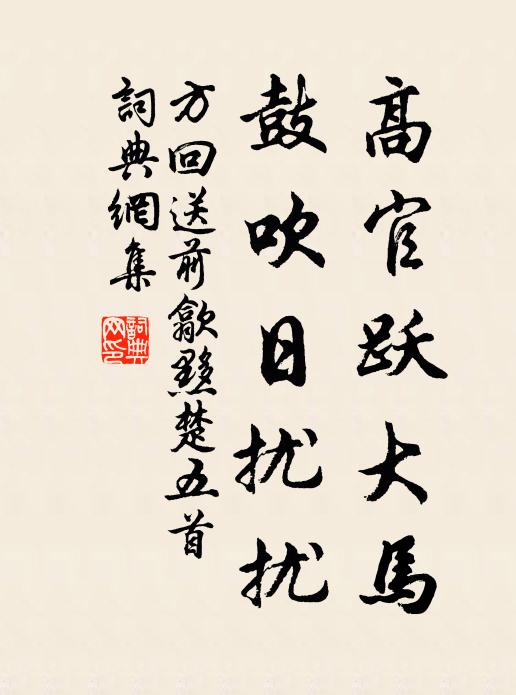 高官跃大馬
鼓吹日扰扰
方回送前歙黟楚五首
詞典網集
詞典网印